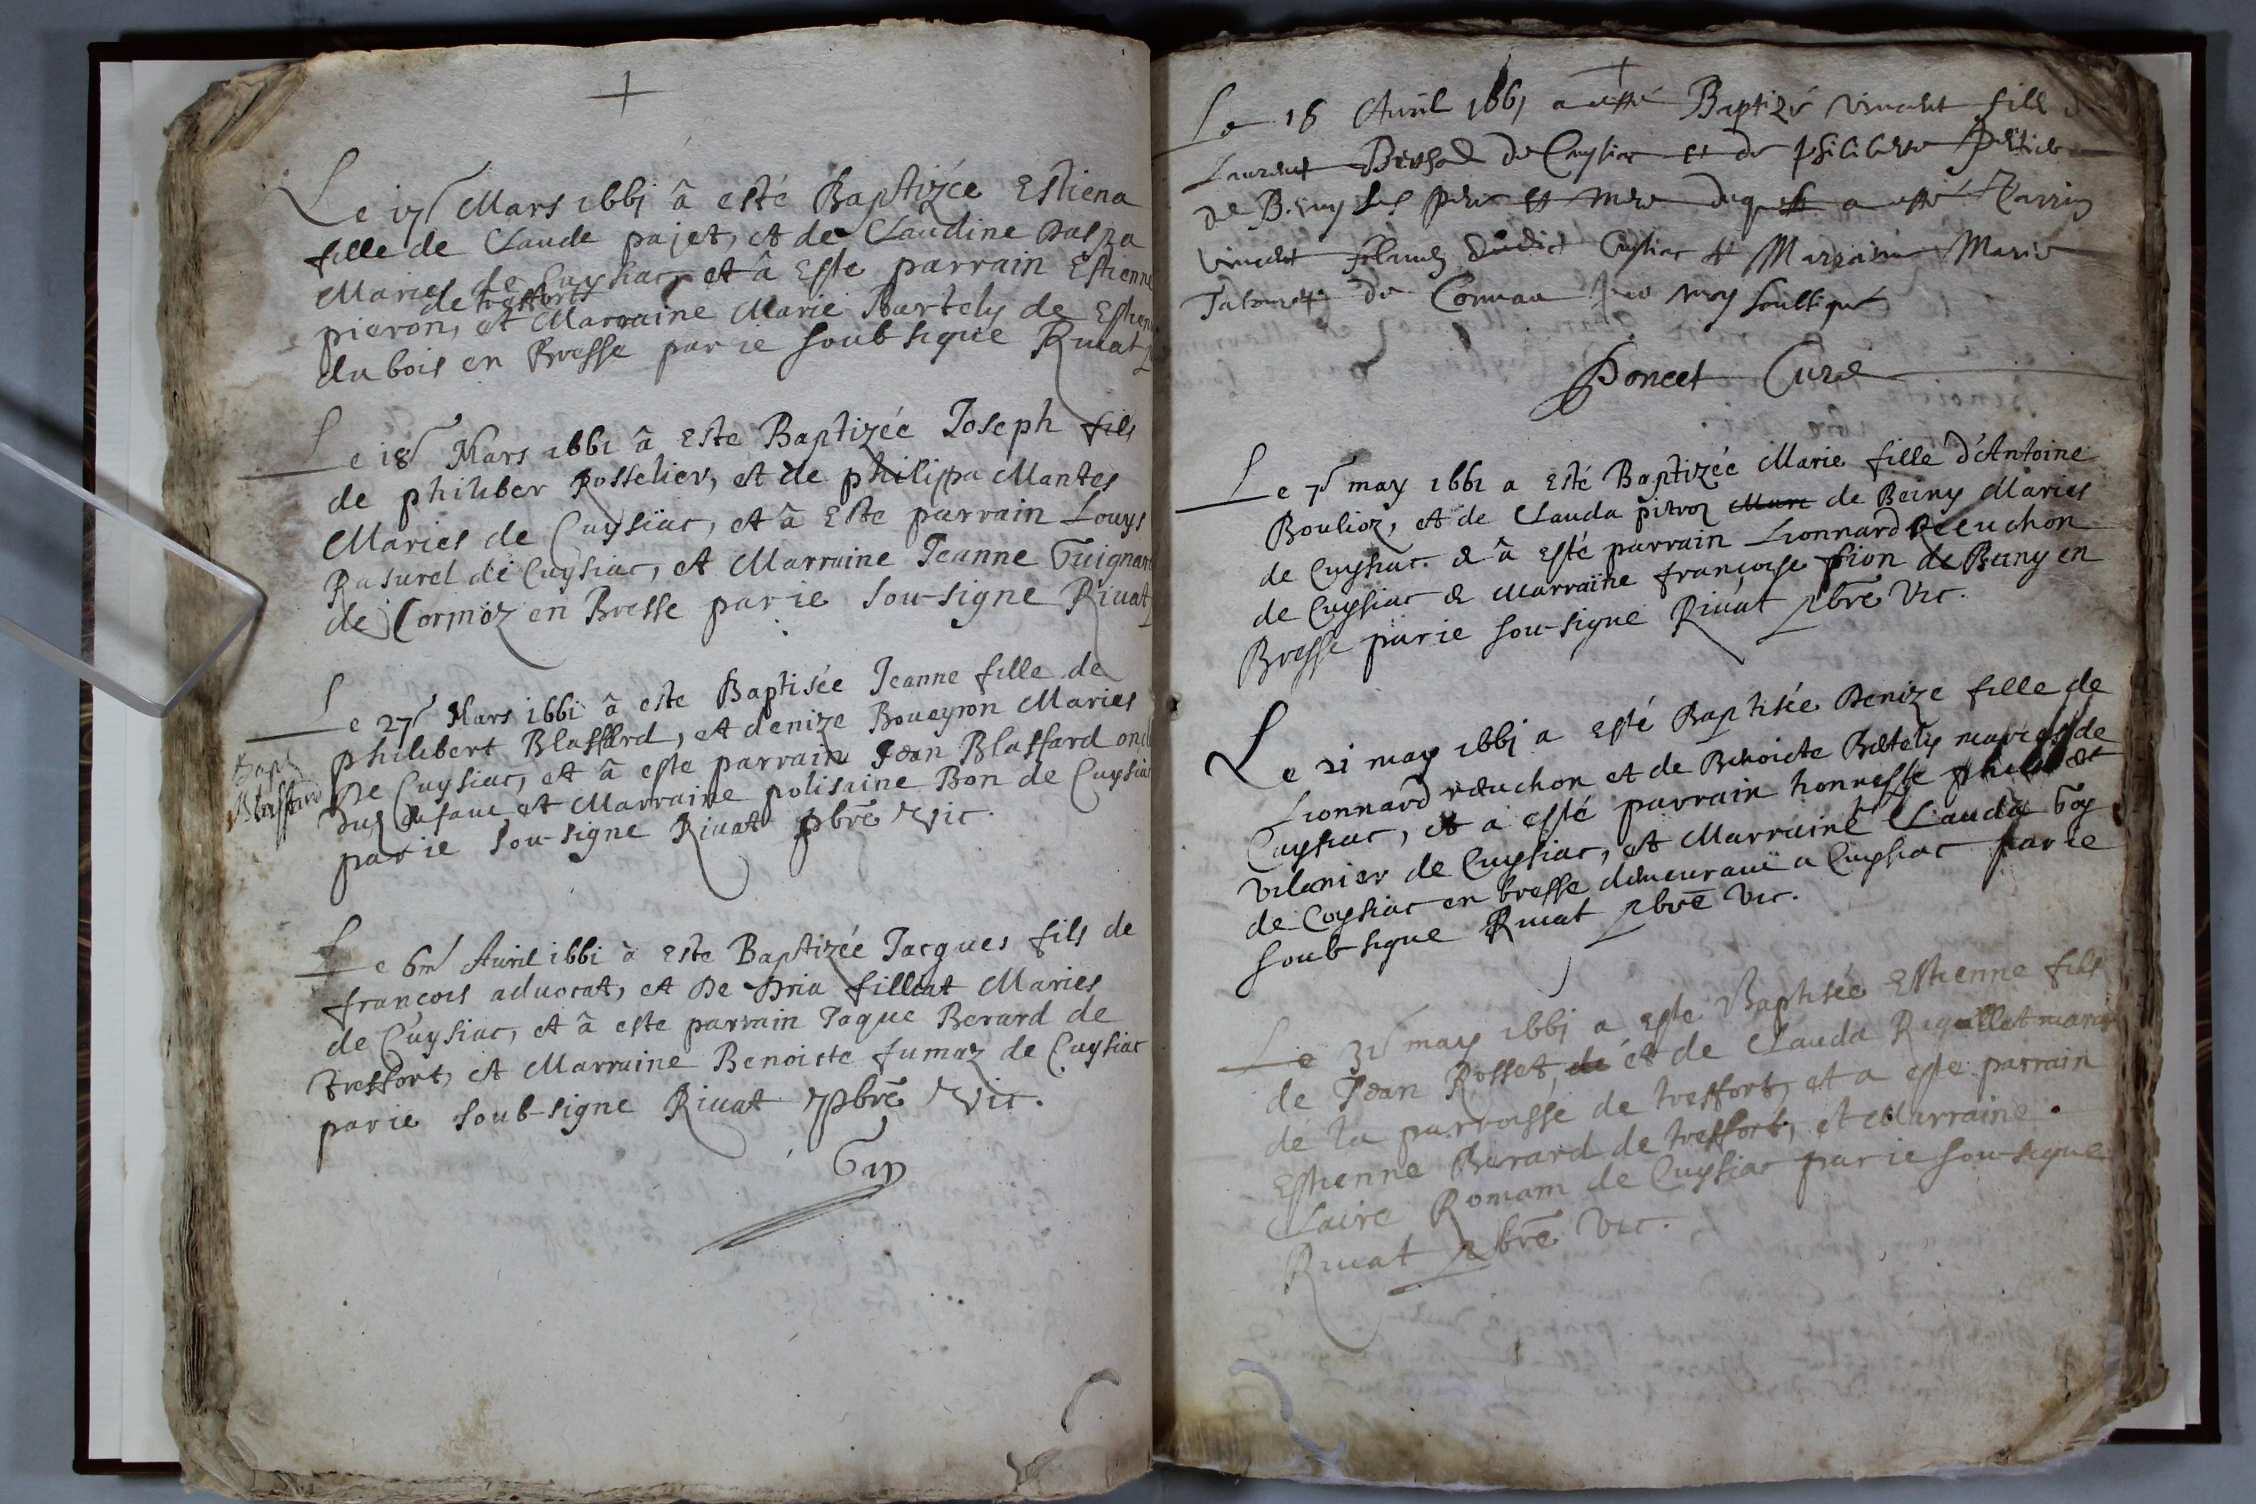 Le 17e Mars 1661 â esté Baptizée Estiena
fille de Claude pajet, et de Claudine
Maries de Cuysiac, et â Este parrain Estienne
de treffort
pieron, et Marraine Marie Bartely de Estien
du bois en Bresse par ie soubsigné Riuat
Le 18e Mars 1661 â Este Baptizée Joseph fils
de philiber Rosselier, et de philippa Mantes
Maries de Cuysiac, et â Este parrain Louys
Rasurel de Cuysiac, et Marraine Jeanne Guignar
de Cormoz en Bresse par ie sou-signe Riuat
Le 27e Mars 1661 â este Baptisée Jeanne fille de
philibert Blassard, et denize Boueyron Maries
De Cuysiac, et â este parrain Jean Blassard
et Marraine polisaine Bon de Cuysiac
par ie sou-signe Riuat pbrē Vic.
Bapt
Blassard
Le 6me Auril 1661 â Este Baptizée Jacques fils de
francois aduocat, et De Dria filliat Maries
de Cuysiac, et â este parrain Jaque Berard de
treffort, et Marraine Benoiste fumaz de Cuysiac
par ie soub-signe Riuat pbrē Vic.
Le 18 Auril 1661 a esté Baptizé vincent fill
Laurent de Cuysiac et de philiberte
de Beny ses pere et mere duquel a esté Parrin
vincent dudict Cuysiac et Marraine Marie
de par moy soubsigné
Poncet Curé
Le 7e may 1661 a Esté Baptizée Marie fille d'Antoine
Boulioz, et de Clauda pitroz de Beiny Maries
de Cuysiac. & â esté parrain Lionnard Reuchon
de Cuysiac & Marraine francoise pion de Beiny en
Bresse par ie sou-signe Riuat pbrē Vic.
Le 21 may 1661 a Esté Baptisée Denize fille de
Lionnard reuchon et de Benoicte Bartely mariés de
Cuysiac, et a esté parrain honneste philibert
vilanier de Cuysiac, et Marraine Clauda Goy
de Coysiac en bresse demeurant a Cuysiac par ie
soub-signe Riuat pbrē Vic.
Le 31e may 1661 a Este Baptisée Estienne fils
de Jean Rosset, de et de Clauda Riquillet maries
de la parroisse de treffort, et a este parrain
Estienne Berard de treffort, et Marraine
Claire Romam de Cuysiac par ie sou-signe
Riuat pbrē Vic.